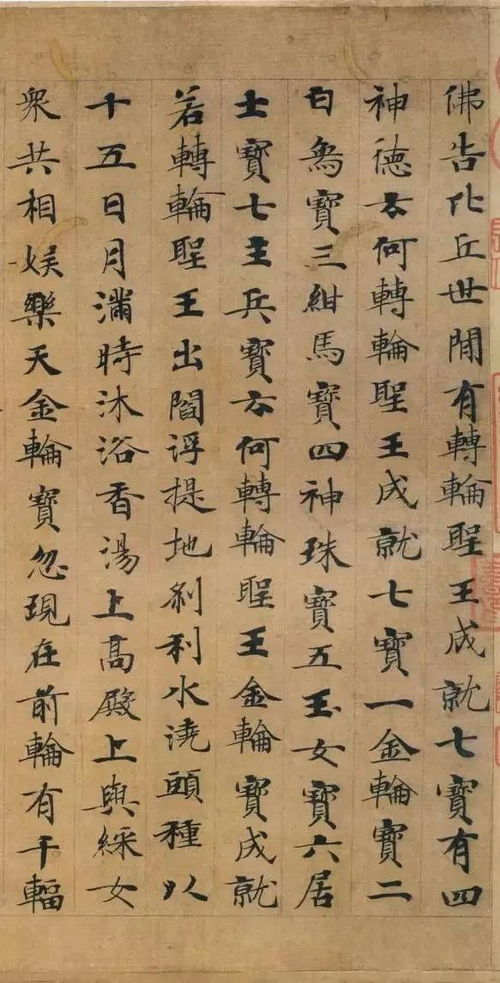 佛告比丘世間有轉輪聖王成就七寶有四
神德云何轉輪聖王成就七寶一金輪寶二
白象寶三紺馬寶四神珠寶五玉女寶六居
士寶七主兵寶云何轉輪聖王金輪寶成就
若轉輪聖王出閻浮提地剎利水澆頭種以
十五日月滿時沐浴香湯上高殿上與綵女
眾共相娛樂天金輪寶忽現在前輪有千輻